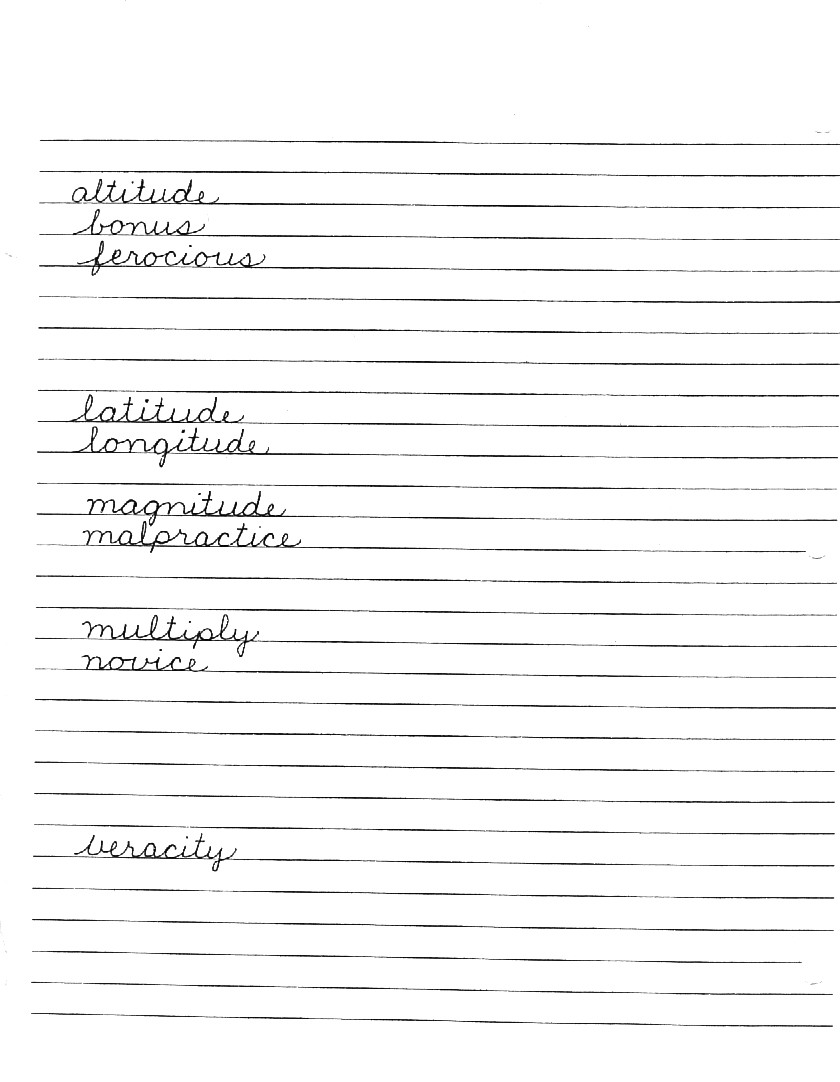 altitude
bonus
ferocious
latitude
longitude
magnitude
malpractice
multiply
novice
veracity